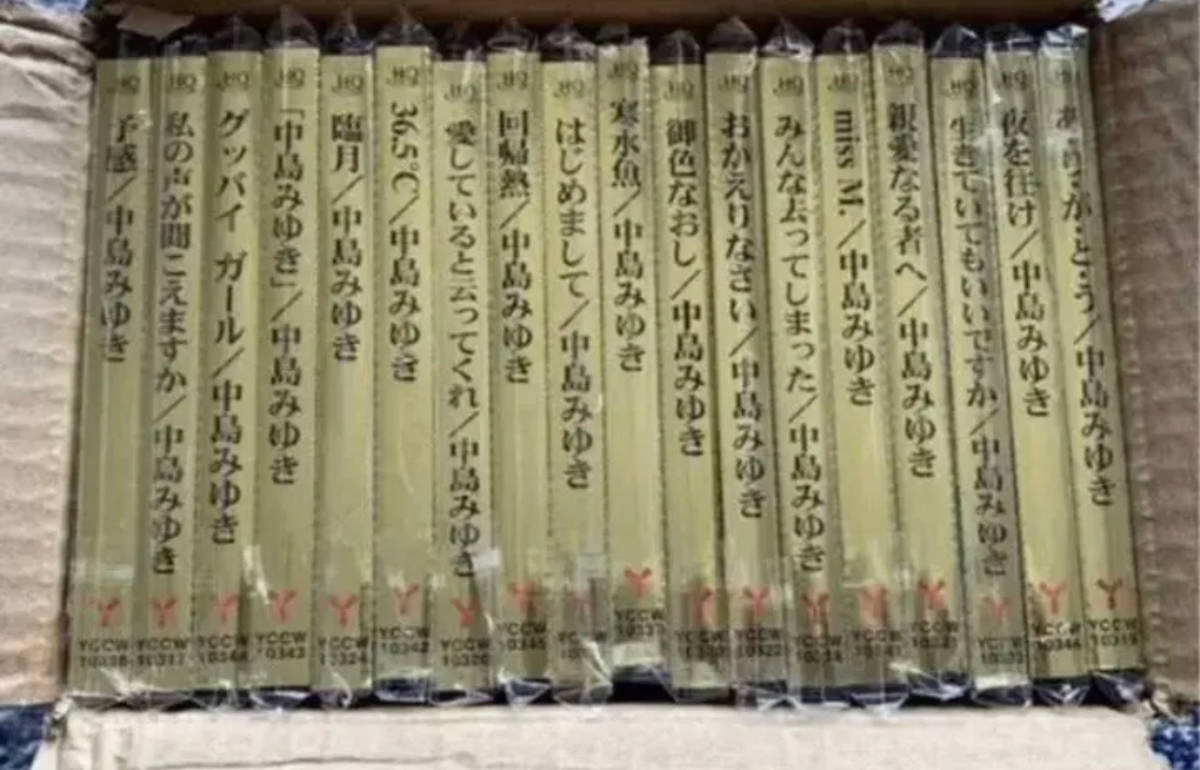 HQ
予感/中島みゆき
YCCW
HQ
私の声が聞こえますか/中島みゆき
YCCW
10317
HQ
グッバイ ガール/中島みゆき
YCCW
10344
HQ
「中島みゆき」/中島みゆき
YCCW
10343
HQ
臨月/中島みゆき
YCCW
10324
HQ
36.5℃/中島みゆき
YCCW
10342
HQ
愛していると云ってくれ/中島みゆき
YCCW
10320
HQ
回帰熱/中島みゆき
YCCW
10345
HQ
はじめまして/中島みゆき
HQ
寒水魚/中島みゆき
YCCW
HQ
御色なおし/中島みゆき
YCCW
HQ
おかえりなさい/中島みゆき
YCCW
HQ
みんな去ってしまった/中島みゆき
YCCW
HQ
miss M./中島みゆき
YCCW
HQ
親愛なる者へ/中島みゆき
YCCW
HQ
生きていてもいいですか/中島みゆき
YCCW
HQ
夜を往け/中島みゆき
YCCW
10346
HQ
あ・り・が・と・う/中島みゆき
YCCW
10319